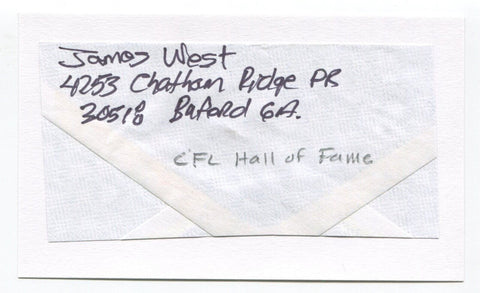 James West
4253 Chatham Ridge PR
30518 Buford GA.
CFL Hall of Fame